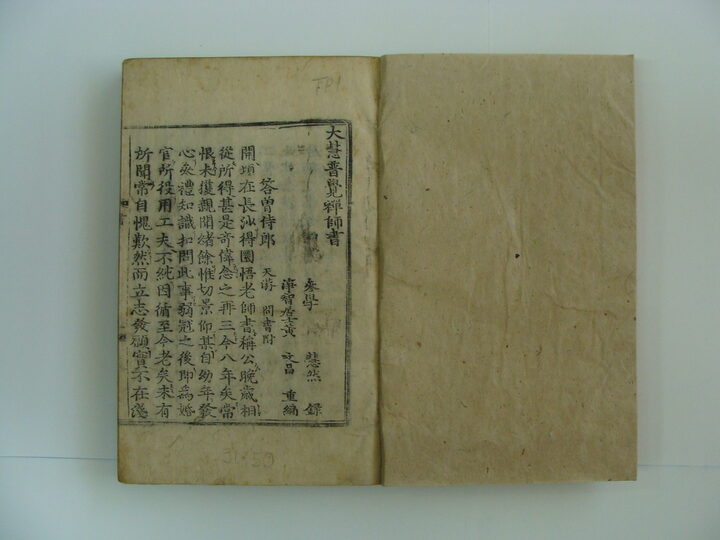 大慧普覺禪師書
叅學 慧然 録
淨智居士黃 文昌 重編
答曾侍郎 天游 問書附
開頃在長沙得圜悟老師書稱公晚歲相
從所得甚是奇偉念之再三今八年矣常
恨未獲親聞緒餘惟切景仰某自幼年發
心叅禮知識扣問此事弱冠之後即為婚
官所役用工夫不純因循至今老矣未有
所聞常自愧歎然而立志發願實不在淺
31-53